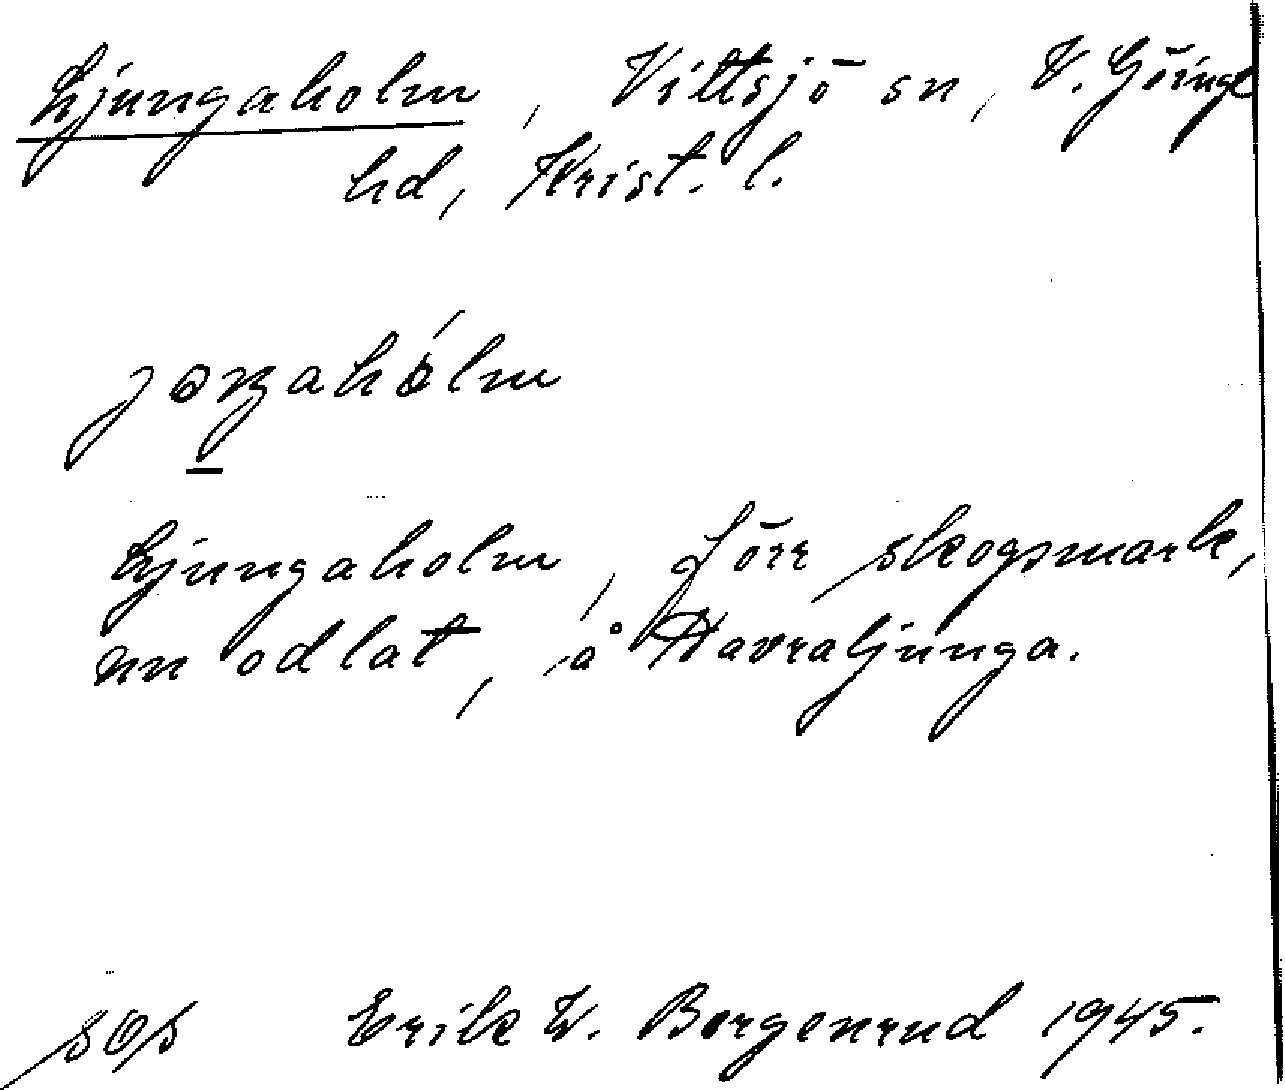 Ljungaholm, Vittsjö sn, V. Göinge
hd, Krist. l.
Ljungaholm, förr skogsmark,
nu odlat, å Havraljunga.
SOS Erik W. Borgenrud 1945.